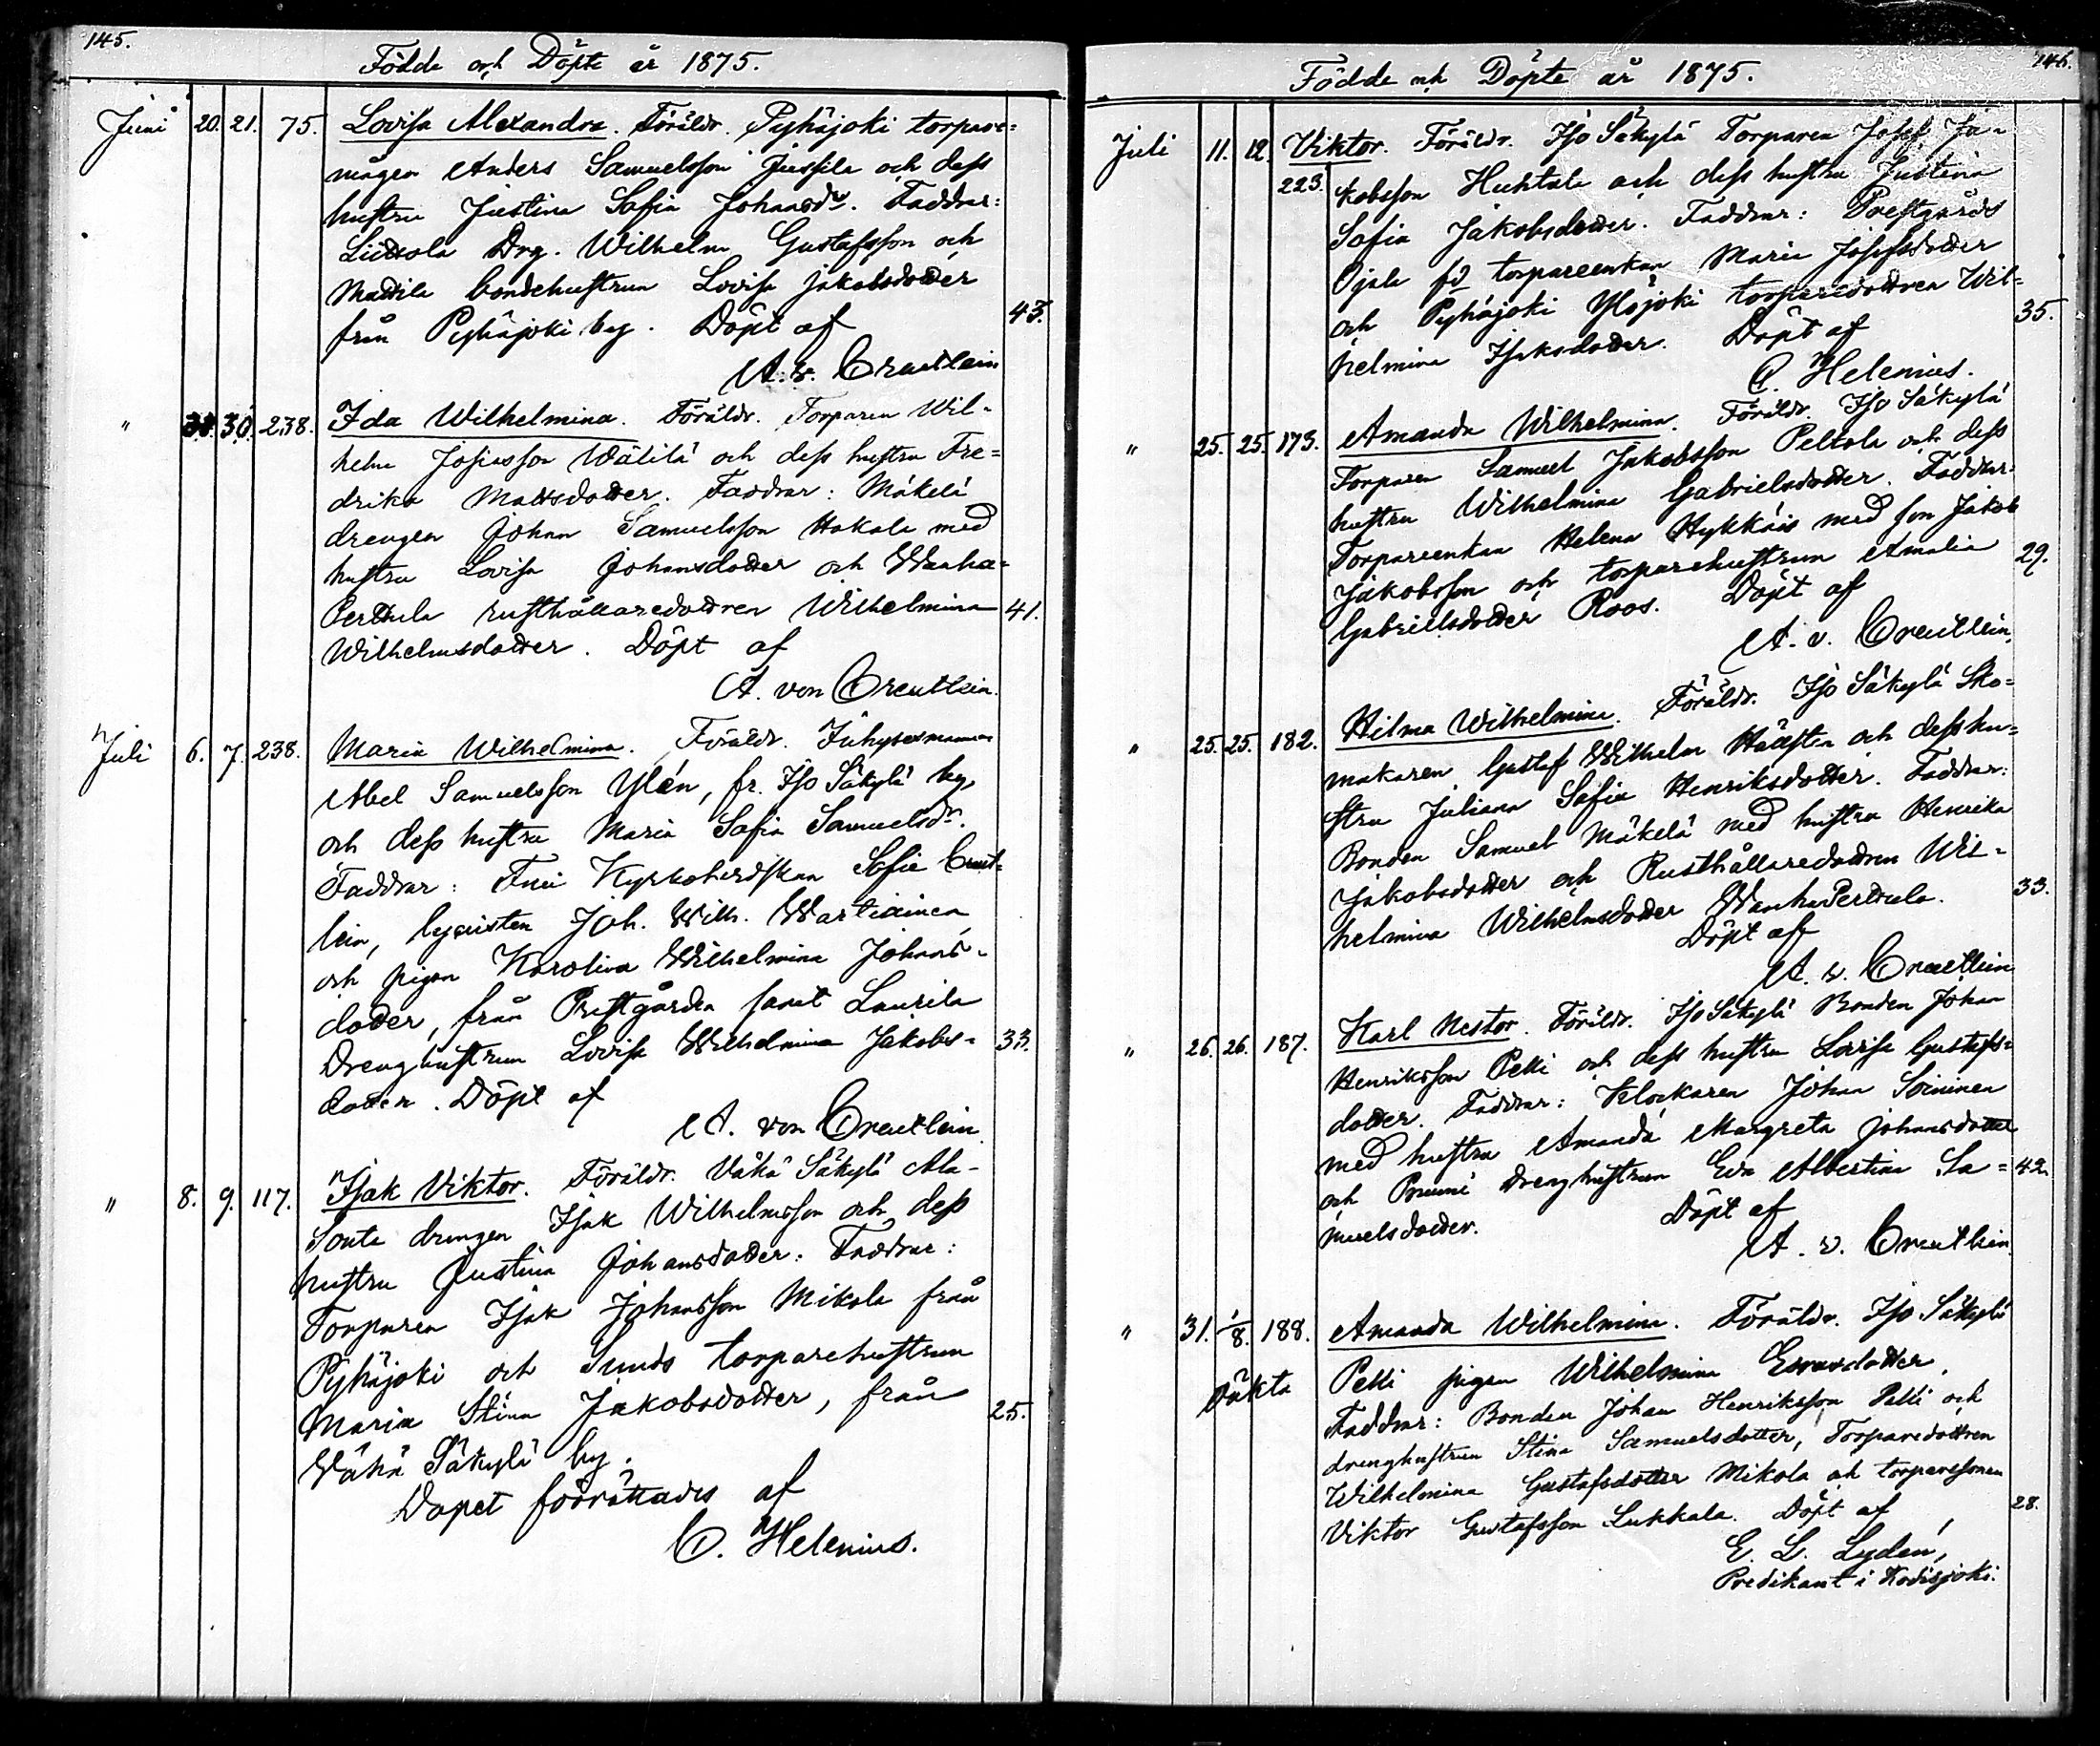 145.
Födde och Döpte år 1875.
Juni 20. 21. 75. Lovisa Alexandra. Föräldr. Pyhäjoki torpare=
mågen Anders Samuelsson Jussila och dess
hustru Justina Sofia Johansdr. Faddrar:
Drg. Wilhelm Gustafsson och
Mattila bondehustrun Lovisa Jakobsdotter
från Pyhäjoki by. Döpt af 43.
A. v. Creutlein
" 30. 30. 238. Ida Wilhelmina. Föräldr. Torparen Wil=
helm Josefsson Wälilä och dess hustru Fre=
drika Mattsdotter. Faddrar: Mäkelä
drengen Johan Samuelsson Hakala med
hustru Lovisa Johansdotter och Wanha=
Perttula rusthållaredottren Wilhelmina 41.
Wilhelmsdotter. Döpt af
A. von Creutlein.
Juli 6. 7. 238. Maria Wilhelmina. Föräldr. Inhysesmannen
Abel Samuelsson Ylén, fr. Iso Säkylä by,
och dess hustru Maria Sofia Samuelsdr.
Faddrar: Frui Kyrkoherdskan Sofie Creut=
lein, lyceisten Joh. Wilh. Wartiainen
och pigan Karolina Wilhelmina Johans=
dotter, från Prestgården samt Laurila
Drenghustrun Lovisa Wilhelmina Jakobs= 33.
dotter. Döpt af
A. von Creutlein.
" 8. 9. 117. Isak Viktor. Föräldr. Vähä Säkylä Ala=
Sonta drengen Isak Wilhelmsson och dess
hustru Justina Johansdotter. Faddrar:
Torparen Isak Johansson Mikola från
Pyhäjoki och Sunds torparehustrun
Maria Stina Jakobsdotter, från 25.
Wähä Säkylä by.
Dopet förrättades af
C. Helenius.
146.
Födde och Döpte år 1875.
Juli 11. 12. Viktor. Föräldr. Iso Säkylä Torparen Josef Ja=
223. kobsson Huhtala och dess hustru Justina
Sofia Jakobsdotter. Faddrar: Prestgårds
Ojala fd torpareenkan Maria Josefsdotter
och Pyhäjoki Yläjoki torparedottren Wil= 35.
helmina Isaksdotter. Döpt af
C. Helenius.
" 25. 25. 173. Amanda Wilhelmina. Föräldr. Iso Säkylä
Torparen Samuel Jakobsson Peltola och dess
hustru Wilhelmina Gabrielsdotter. Faddrar:
Torpareenkan Helena Hykkäis med son Jakob
Jakobsson och torparehustrun Amalia 29.
Gabrielsdotter Roos. Döpt af
A. v. Creutlein.
" 25. 25. 182. Hilma Wilhelmina. Föräldr. Iso Säkylä Sko=
makaren Gustaf Wilhelm Hällsten och dess hu=
stru Juliana Sofia Henriksdotter. Faddrar:
Bonden Samuel Mäkelä med hustru Henrika
Jakobsdotter och Rusthållaredottren Wil=
helmina Wilhelmsdotter WanhaPerttula. 33.
Döpt af
A. v. Creutlein
" 26. 26. 187. Karl Nestor. Föräldr. Iso Säkylä Bonden Johan
Henriksson Pelli och dess hustru Lovisa Gustafs=
dotter. Faddrar: Klockaren Johan Soininen
med hustru Amanda Margreta Johansdotter
och drenghustrun Eva Albertina Sa= 42.
muelsdotter. Döpt af
A. v. Creutlein
" 31. 1/8. 188. Amanda Wilhelmina. Föräldr. Iso Säkylä
oäkta Pelli pigan Wilhelmina Esrasdotter,
Faddrar: Bonden Johan Henriksson Pelli och
drenghustrun Stina Samuelsdotter, Torparedottren
Wilhelmina Gustafsdotter Mikola och torparesonen
Viktor Gustafsson Lukkala. Döpt af 28.
E. L. Lydén,
Predikant i Kodisjoki.